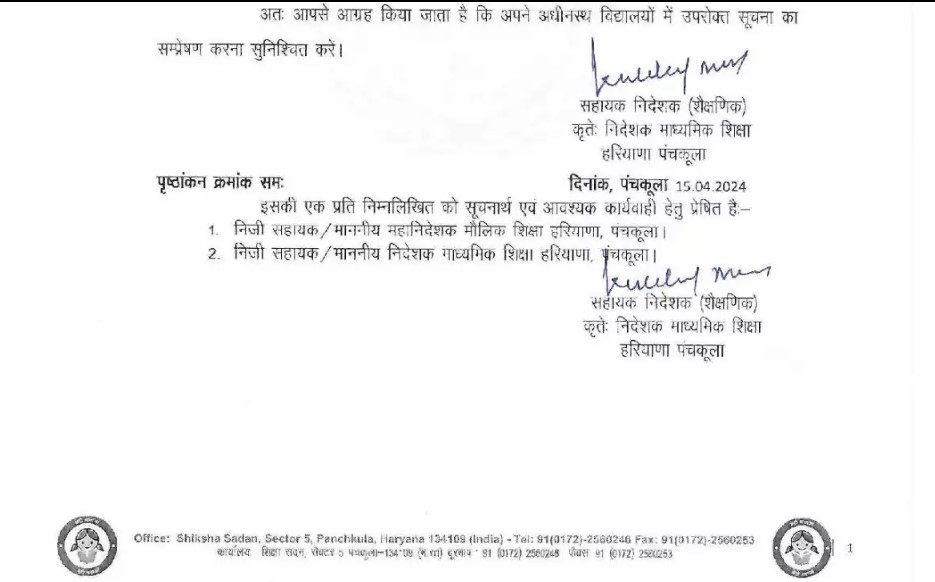 अतः आपसे आग्रह किया जाता है कि अपने अधीनस्थ विद्यालयों में उपरोक्त सूचना का
सम्प्रेषण करना सुनिश्चित करें।
सहायक निदेशक (शैक्षणिक)
कृतेः निदेशक माध्यमिक शिक्षा
हरियाणा पंचकूला
पृष्ठांकन क्रमांक समः दिनांक, पंचकूला 15.04.2024
इसकी एक प्रति निम्नलिखित को सूचनार्थ एवं आवश्यक कार्यवाही हेतु प्रेषित हैः–
1. निजी सहायक/माननीय महानिदेशक मौलिक शिक्षा हरियाणा, पंचकूला।
2. निजी सहायक/माननीय निदेशक माध्यमिक शिक्षा हरियाणा, पंचकूला।
सहायक निदेशक (शैक्षणिक)
कृतेः निदेशक माध्यमिक शिक्षा
हरियाणा पंचकूला
Office: Shiksha Sadan, Sector 5, Panchkula, Haryana 134109 (India) - Tel: 91(0172)-2560246 Fax: 91(0172)-2560253
कार्यालय: शिक्षा सदन, सेक्टर 5 पंचकूला–134109 दूरभाष : 91 (0172) 2560246 91 (0172) 2560253
1